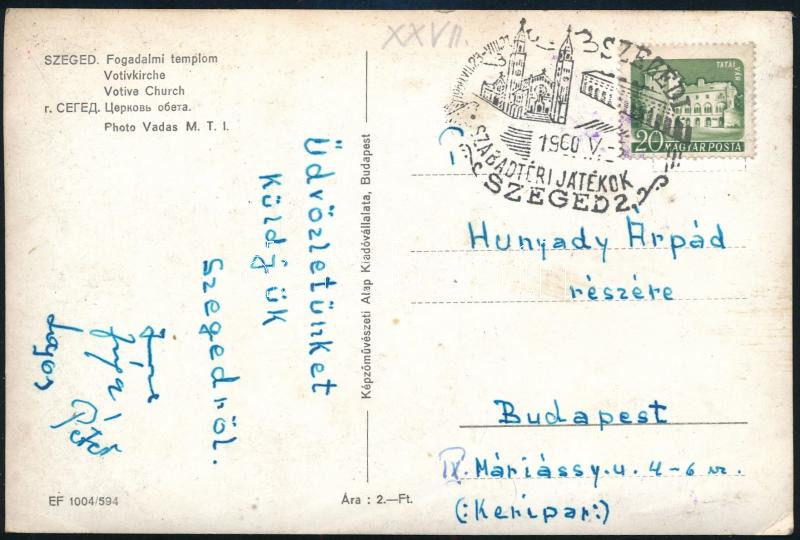 SZEGED. Fogadalmi templom
Votivkirche
Votive Church
г. СЕГЕД. Церковь обета.
Photo Vadas M. T. I.
XXVII.
Üdvözletünket
Küldjük
Szegedről.
Imre
Lajos
Péter
EF 1004/594
Ára : 2.—Ft.
Képzőművészeti Alap Kiadóvállalata, Budapest
SZEGEDI
SZABADTÉRI JÁTÉKOK
1960 V
SZEGED 2
TATAI VÁR
20 MAGYAR POSTA
Hunyady Árpád
részére
Budapest
IX. Máriássy u. 4-6 sz.
(:Keripar:)